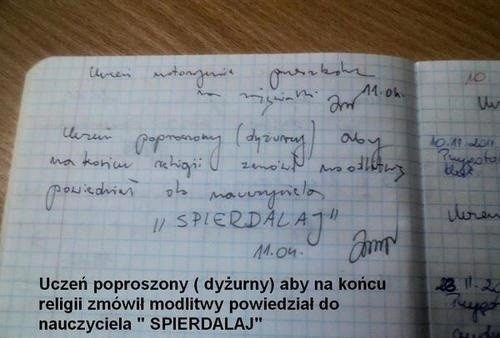 Uczeń notorycznie przeszkadza
na zajęciach 11.04.
Uczeń poproszony (dyżurny) aby
na końcu religii zmówił modlitwy
powiedział do nauczyciela
"SPIERDALAJ"
11.04.
10
10.11.2011
Uczeń poproszony ( dyżurny) aby na końcu
religii zmówił modlitwy powiedział do
nauczyciela " SPIERDALAJ"